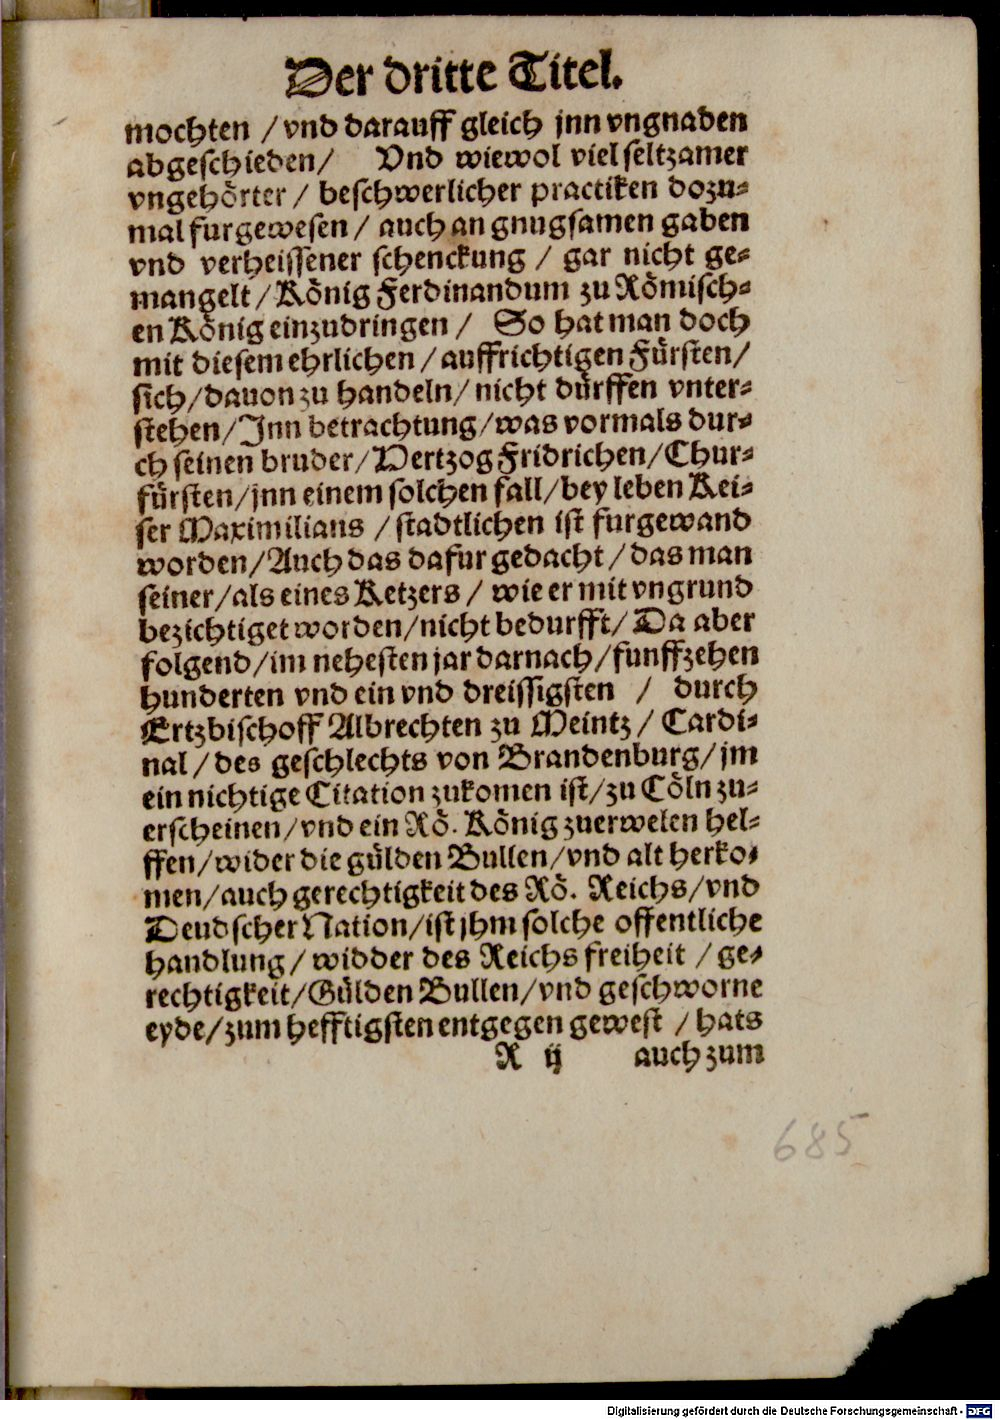 Der dritte Titel.
mochten / vnd darauff gleich jnn vngnaden
abgeschieden / Vnd wiewol viel seltzamer
vngehörter / beschwerlicher practiken dozu-
mal furgewesen / auch an gnugsamen gaben
vnd verheissener schenckung / gar nicht ge-
mangelt / König Ferdinandum zu Römisch-
en König einzudringen / So hat man doch
mit diesem ehrlichen / auffrichtigen Fürsten /
sich / dauon zu handeln / nicht dürffen vnter-
stehen / Jnn betrachtung / was vormals dur-
ch seinen bruder / Hertzog Fridrichen / Chur-
fürsten / jnn einem solchen fall / bey leben Kei-
ser Maximilians / stadtlichen ist furgewand
worden / Auch das dafur gedacht / das man
seiner / als eines Ketzers / wie er mit vngrund
bezichtiget worden / nicht bedurfft / Da aber
folgend / im nehesten jar darnach / funffzehen
hunderten vnd ein vnd dreissigsten / durch
Ertzbischoff Albrechten zu Meintz / Cardi-
nal / des geschlechts von Brandenburg / jm
ein nichtige Citation zukomen ist / zu Cöln zu-
erscheinen / vnd ein Rö. König zuerwelen hel-
ffen / wider die gülden Bullen / vnd alt herko-
men / auch gerechtigkeit des Rö. Reichs / vnd
Deudscher Nation / ist jhm solche offentliche
handlung / widder des Reichs freiheit / ge-
rechtigkeit / Gülden Bullen / vnd geschworne
eyde / zum hefftigsten entgegen gewest / hats
R ij auch zum
685
Digitalisierung gefördert durch die Deutsche Forschungsgemeinschaft - DFG